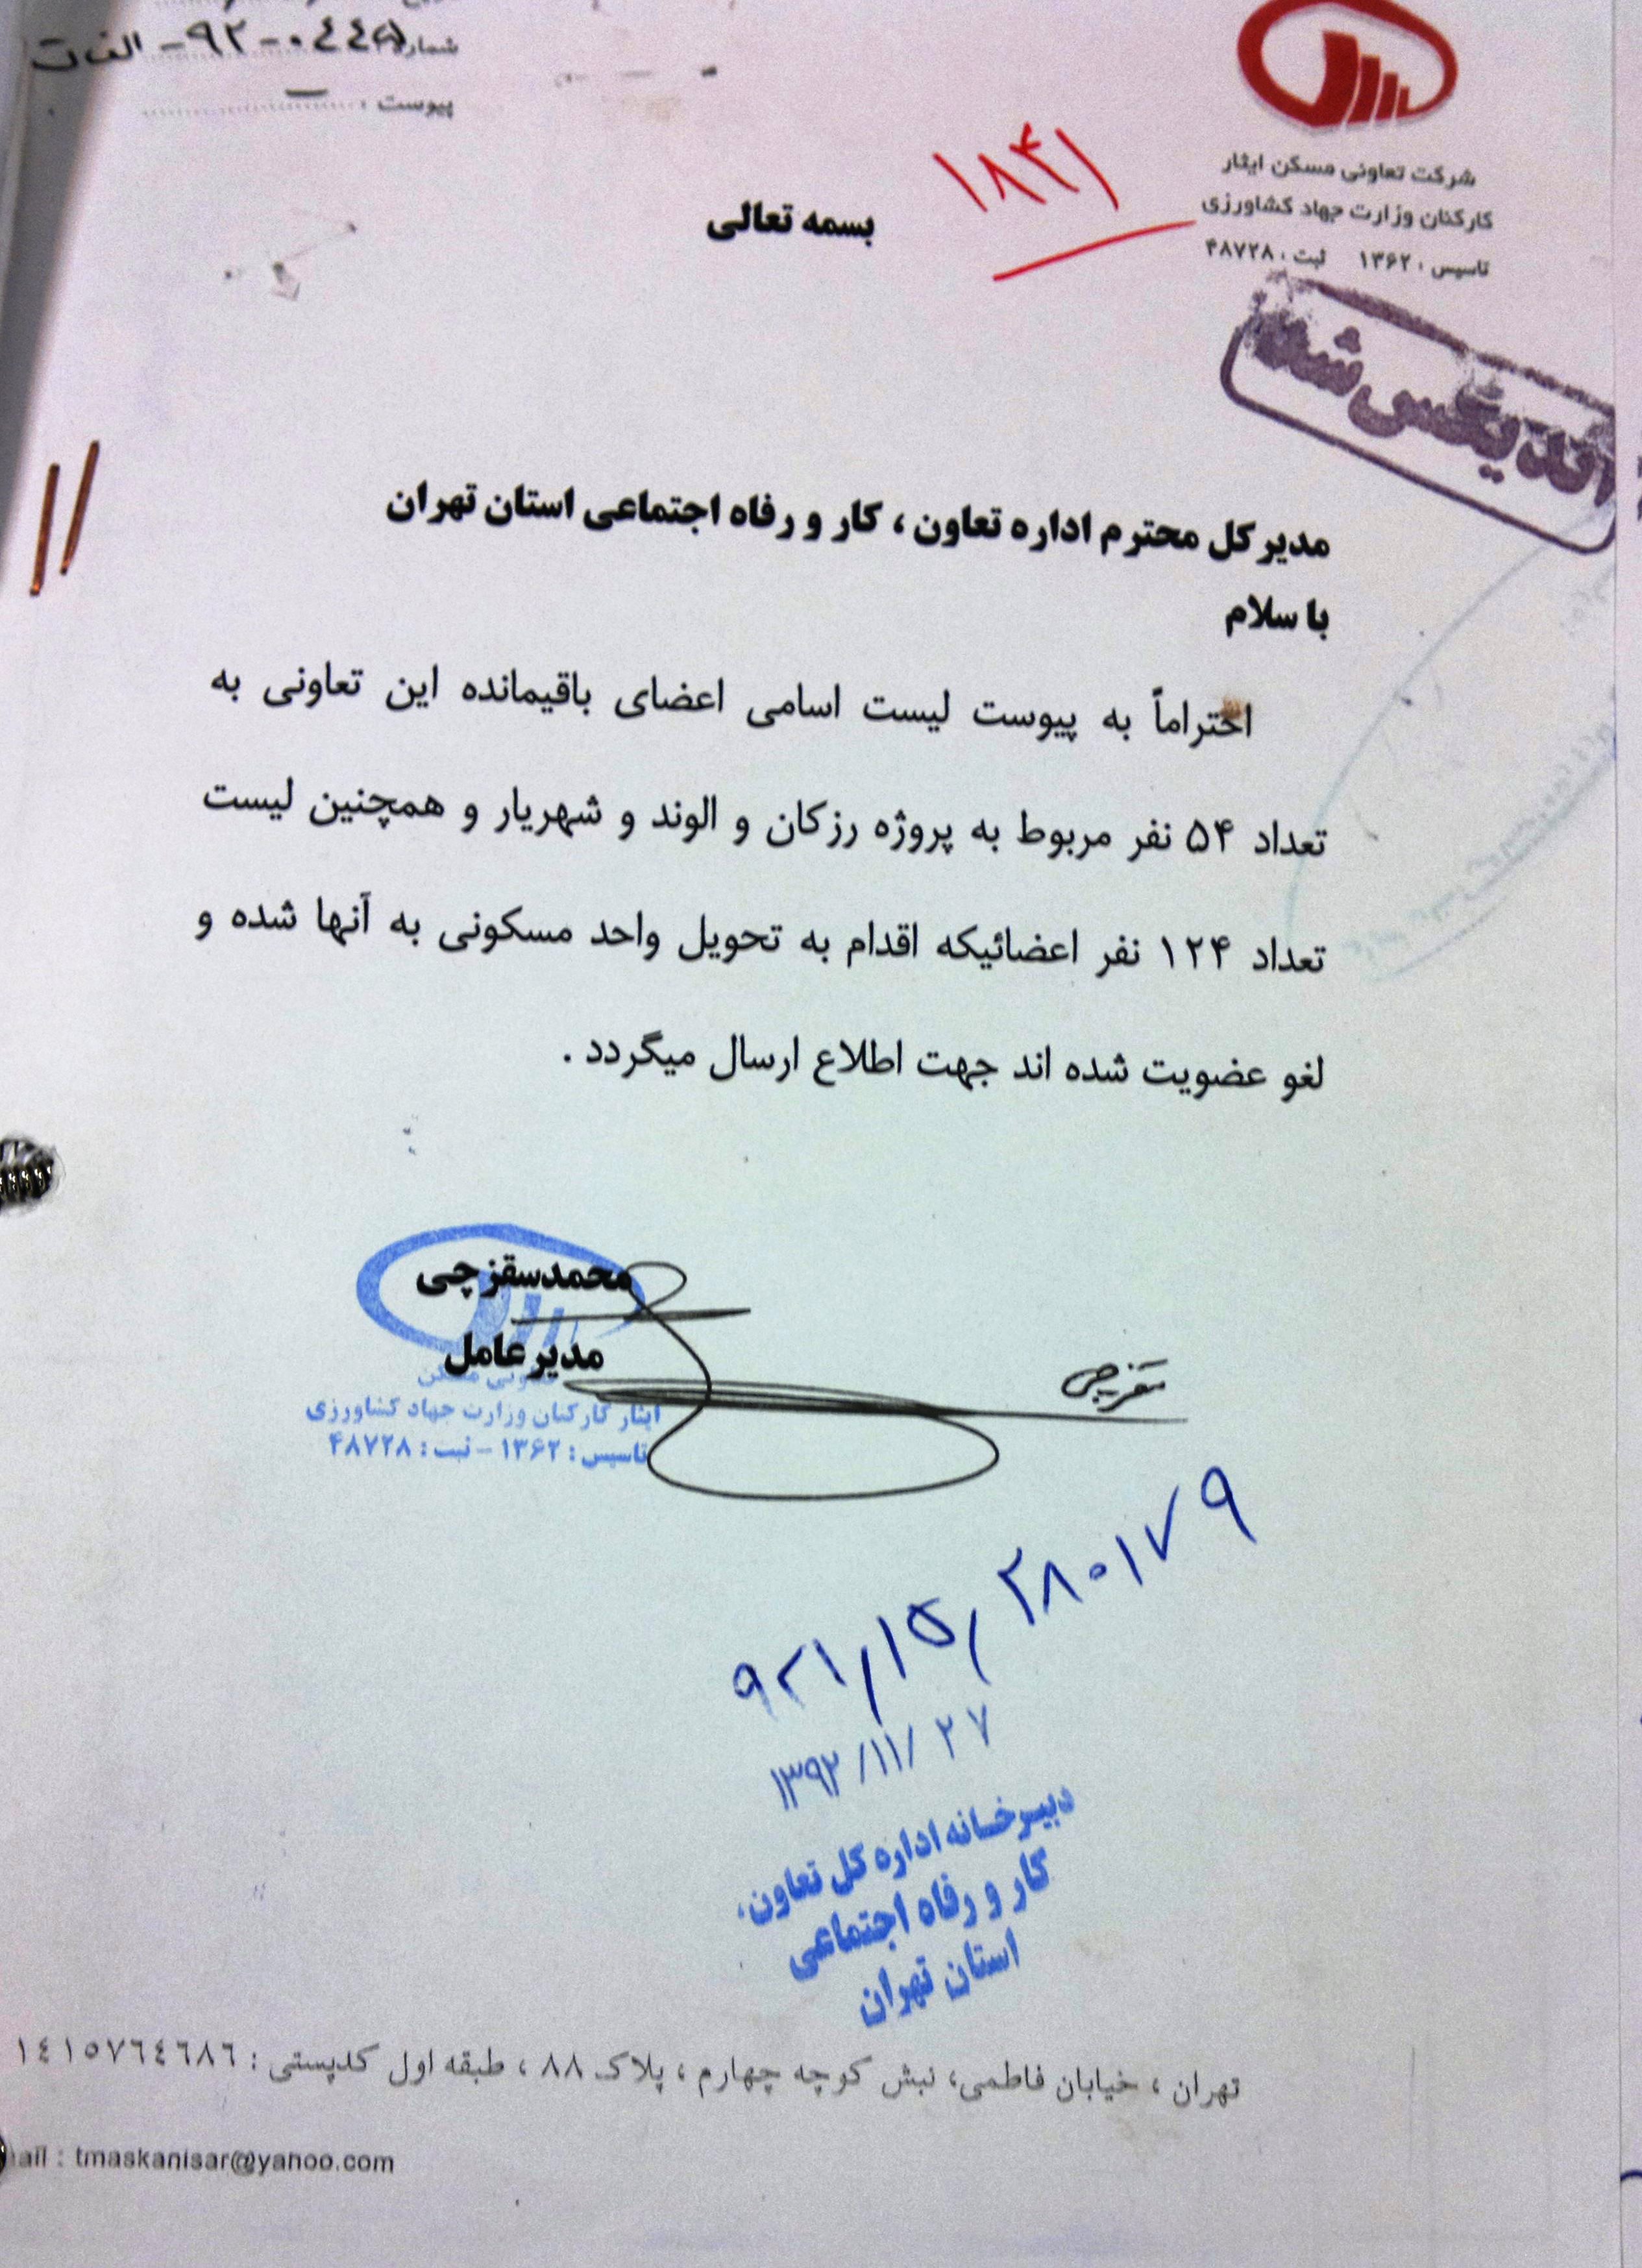 شماره ۰٤٤۵-۹۲- الف ت
پیوست : –
شرکت تعاونی مسکن ایثار
کارکنان وزارت جهاد کشاورزی
تاسیس : ۱۳۶۲ ثبت : ۴۸۷۲۸
۱۸۴۱
بسمه تعالی
اندیکس شد
مدیر کل محترم اداره تعاون ، کار و رفاه اجتماعی استان تهران
با سلام
احتراماً به پیوست لیست اسامی اعضای باقیمانده این تعاونی به
تعداد ۵۴ نفر مربوط به پروژه رزکان و الوند و شهریار و همچنین لیست
تعداد ۱۲۴ نفر اعضائیکه اقدام به تحویل واحد مسکونی به آنها شده و
لغو عضویت شده اند جهت اطلاع ارسال میگردد .
محمدسقزچی
مدیرعامل
تعاونی مسکن
ایثار کارکنان وزارت جهاد کشاورزی
تاسیس : ۱۳۶۲ – ثبت : ۴۸۷۲۸
سقزچی
۹۲۱/۱۵/۲۸۰۱۷۹
۱۳۹۲/۱۱/۲۷
دبیرخانه اداره کل تعاون،
کار و رفاه اجتماعی
استان تهران
تهران ، خیابان فاطمی، نبش کوچه چهارم ، پلاک ۸۸ ، طبقه اول کدپستی : ١٤١٥٧٦٤٦٨٦
ail : tmaskanisar@yahoo.com